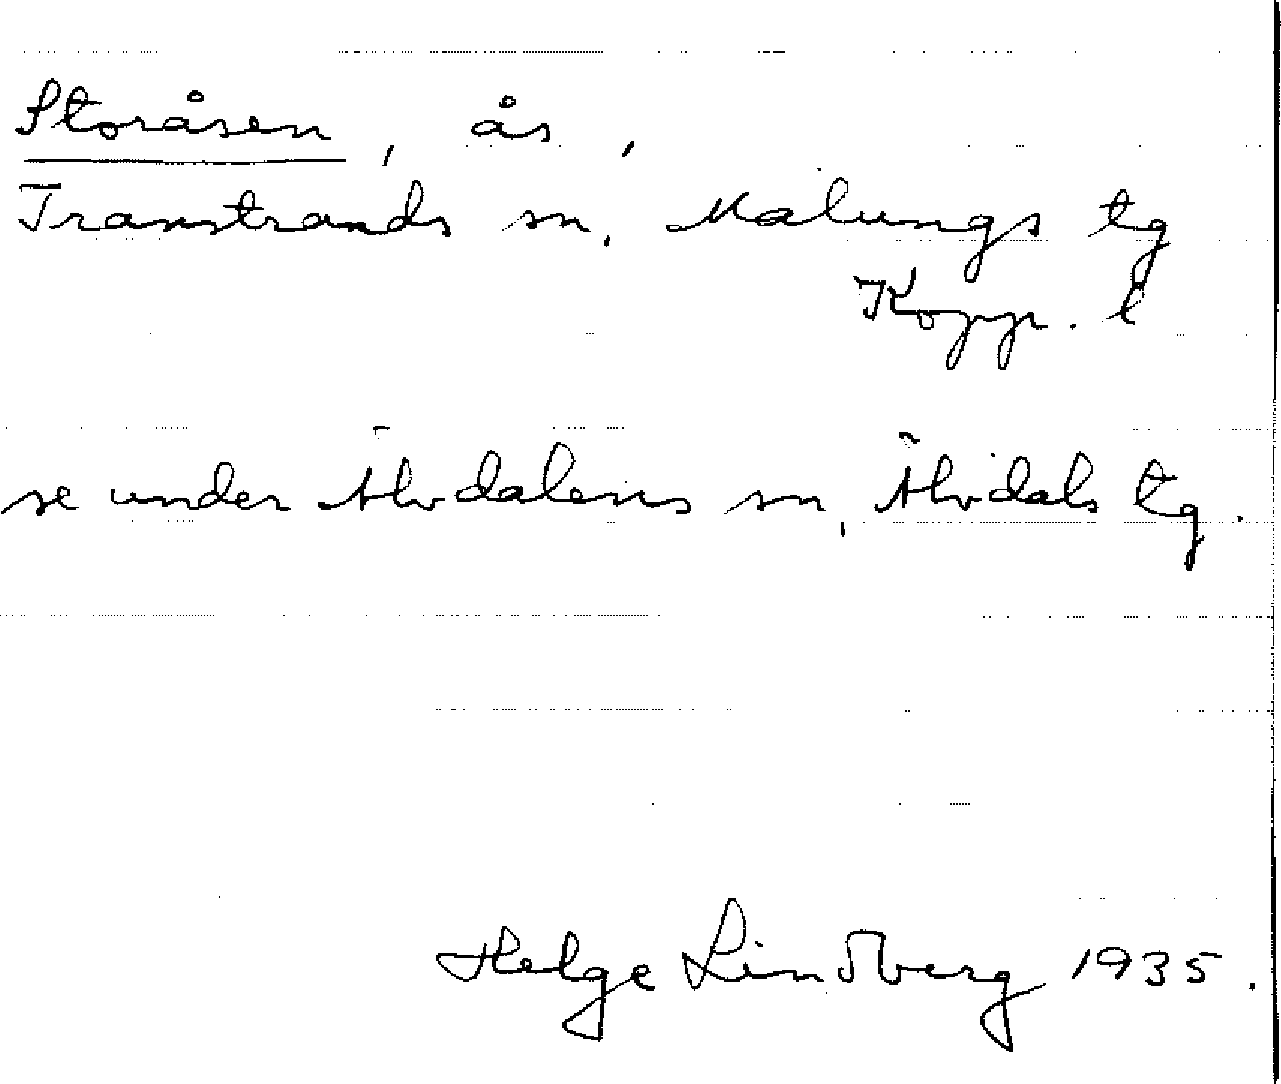 Storåsen, ås,
Transtrands sn, Malungs tg
Kopp. l
se under Älvdalens sn, Älvdals tg.
Helge Lindberg 1935.